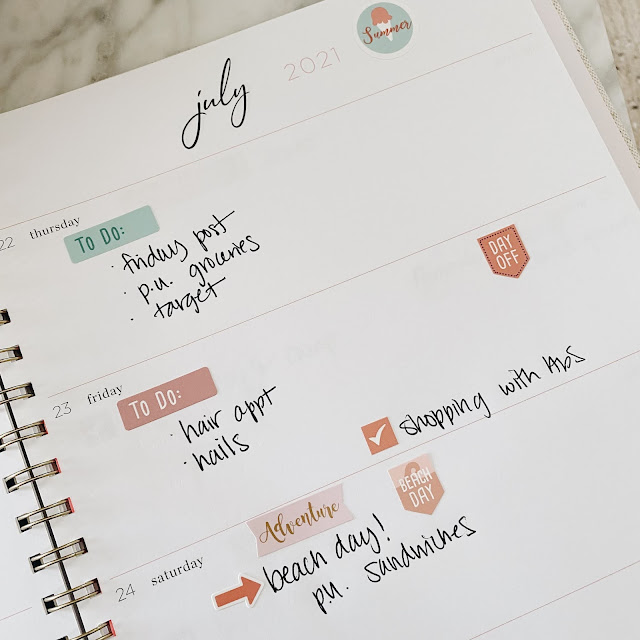 july 2021
Summer
22 thursday
To Do:
· friday post
· p.u. groceries
· target
DAY OFF
23 friday
To Do:
· hair appt
· nails
shopping with
24 saturday
Adventure
BEACH DAY
beach day!
p.u. sandwiches